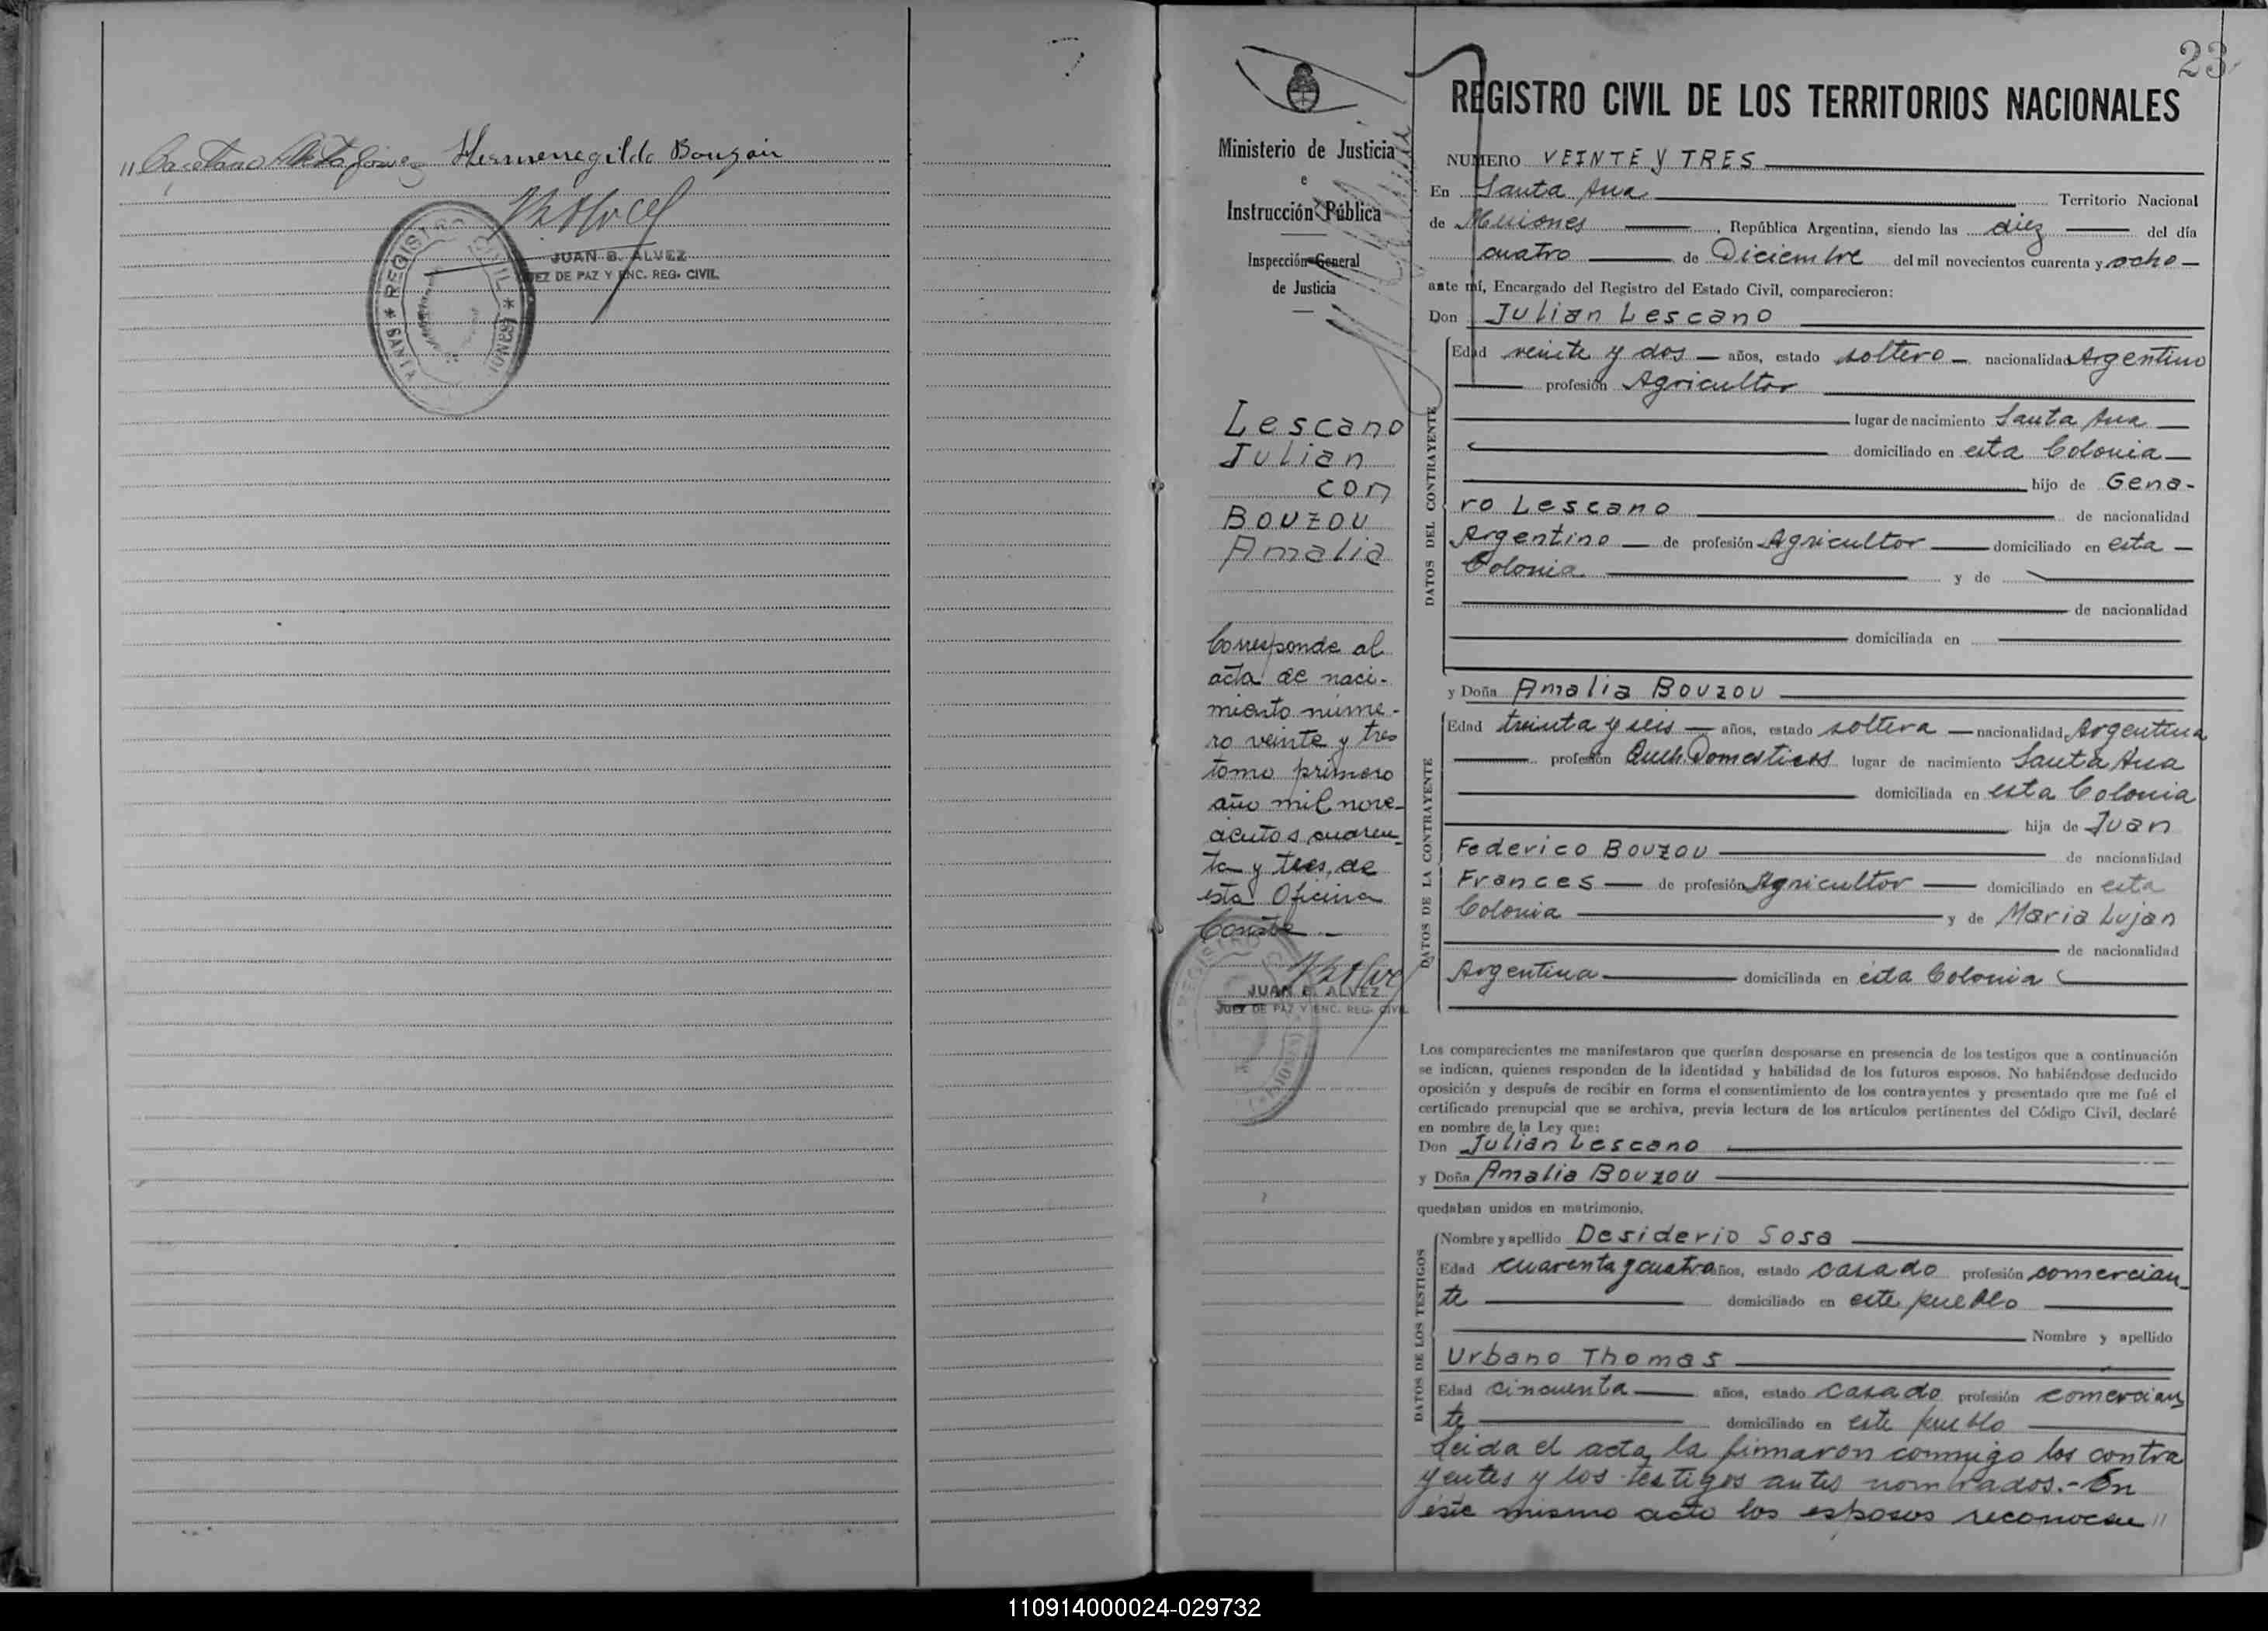 Hermenegildo Bouzon
JUAN B. ALVEZ
JUEZ DE PAZ Y ENC. REG. CIVIL
* REGISTRO CIVIL *
23
Ministerio de Justicia
e
Instrucción Pública
Inspección General
de Justicia
Lescano
Julian
con
Bouzou
Amalia
Corresponde al
acta de naci-
miento núme-
ro veinte y tres
tomo primero
año mil nove-
cientos cuaren-
ta y tres, de
esta Oficina
Conste.-
JUAN B. ALVEZ
JUEZ DE PAZ Y ENC. REG. CIVIL
REGISTRO CIVIL DE LOS TERRITORIOS NACIONALES
NUMERO VEINTE Y TRES
En Santa Ana Territorio Nacional
de Misiones, República Argentina, siendo las diez del día
cuatro de Diciembre del mil novecientos cuarenta y ocho
ante mí, Encargado del Registro del Estado Civil, comparecieron:
Don Julian Lescano
DATOS DEL CONTRAYENTE
Edad veinte y dos años, estado soltero nacionalidad Argentino
profesión Agricultor
lugar de nacimiento Santa Ana
domiciliado en esta Colonia
hijo de Gena-
ro Lescano de nacionalidad
Argentino de profesión Agricultor domiciliado en esta
Colonia y de
de nacionalidad
domiciliada en
y Doña Amalia Bouzou
DATOS DE LA CONTRAYENTE
Edad treinta y seis años, estado soltera nacionalidad Argentina
profesión Queh. Domesticos lugar de nacimiento Santa Ana
domiciliada en esta Colonia
hija de Juan
Federico Bouzou de nacionalidad
Frances de profesión Agricultor domiciliado en esta
Colonia y de Maria Lujan
de nacionalidad
Argentina domiciliada en esta Colonia
Los comparecientes me manifestaron que querían desposarse en presencia de los testigos que a continuación
se indican, quienes responden de la identidad y habilidad de los futuros esposos. No habiéndose deducido
oposición y después de recibir en forma el consentimiento de los contrayentes y presentado que me fué el
certificado prenupcial que se archiva, previa lectura de los artículos pertinentes del Código Civil, declaré
en nombre de la Ley que:
Don Julian Lescano
y Doña Amalia Bouzou
quedaban unidos en matrimonio.
DATOS DE LOS TESTIGOS
Nombre y apellido Desiderio Sosa
Edad cuarenta y cuatro años, estado casado profesión comercian-
te domiciliado en este pueblo
Nombre y apellido
Urbano Thomas
Edad cincuenta años, estado casado profesión comercian
te domiciliado en este pueblo
Leida el acta, la firmaron conmigo los contra
yentes y los testigos antes nombrados.- En
este mismo acto los esposos reconocen //
110914000024-029732